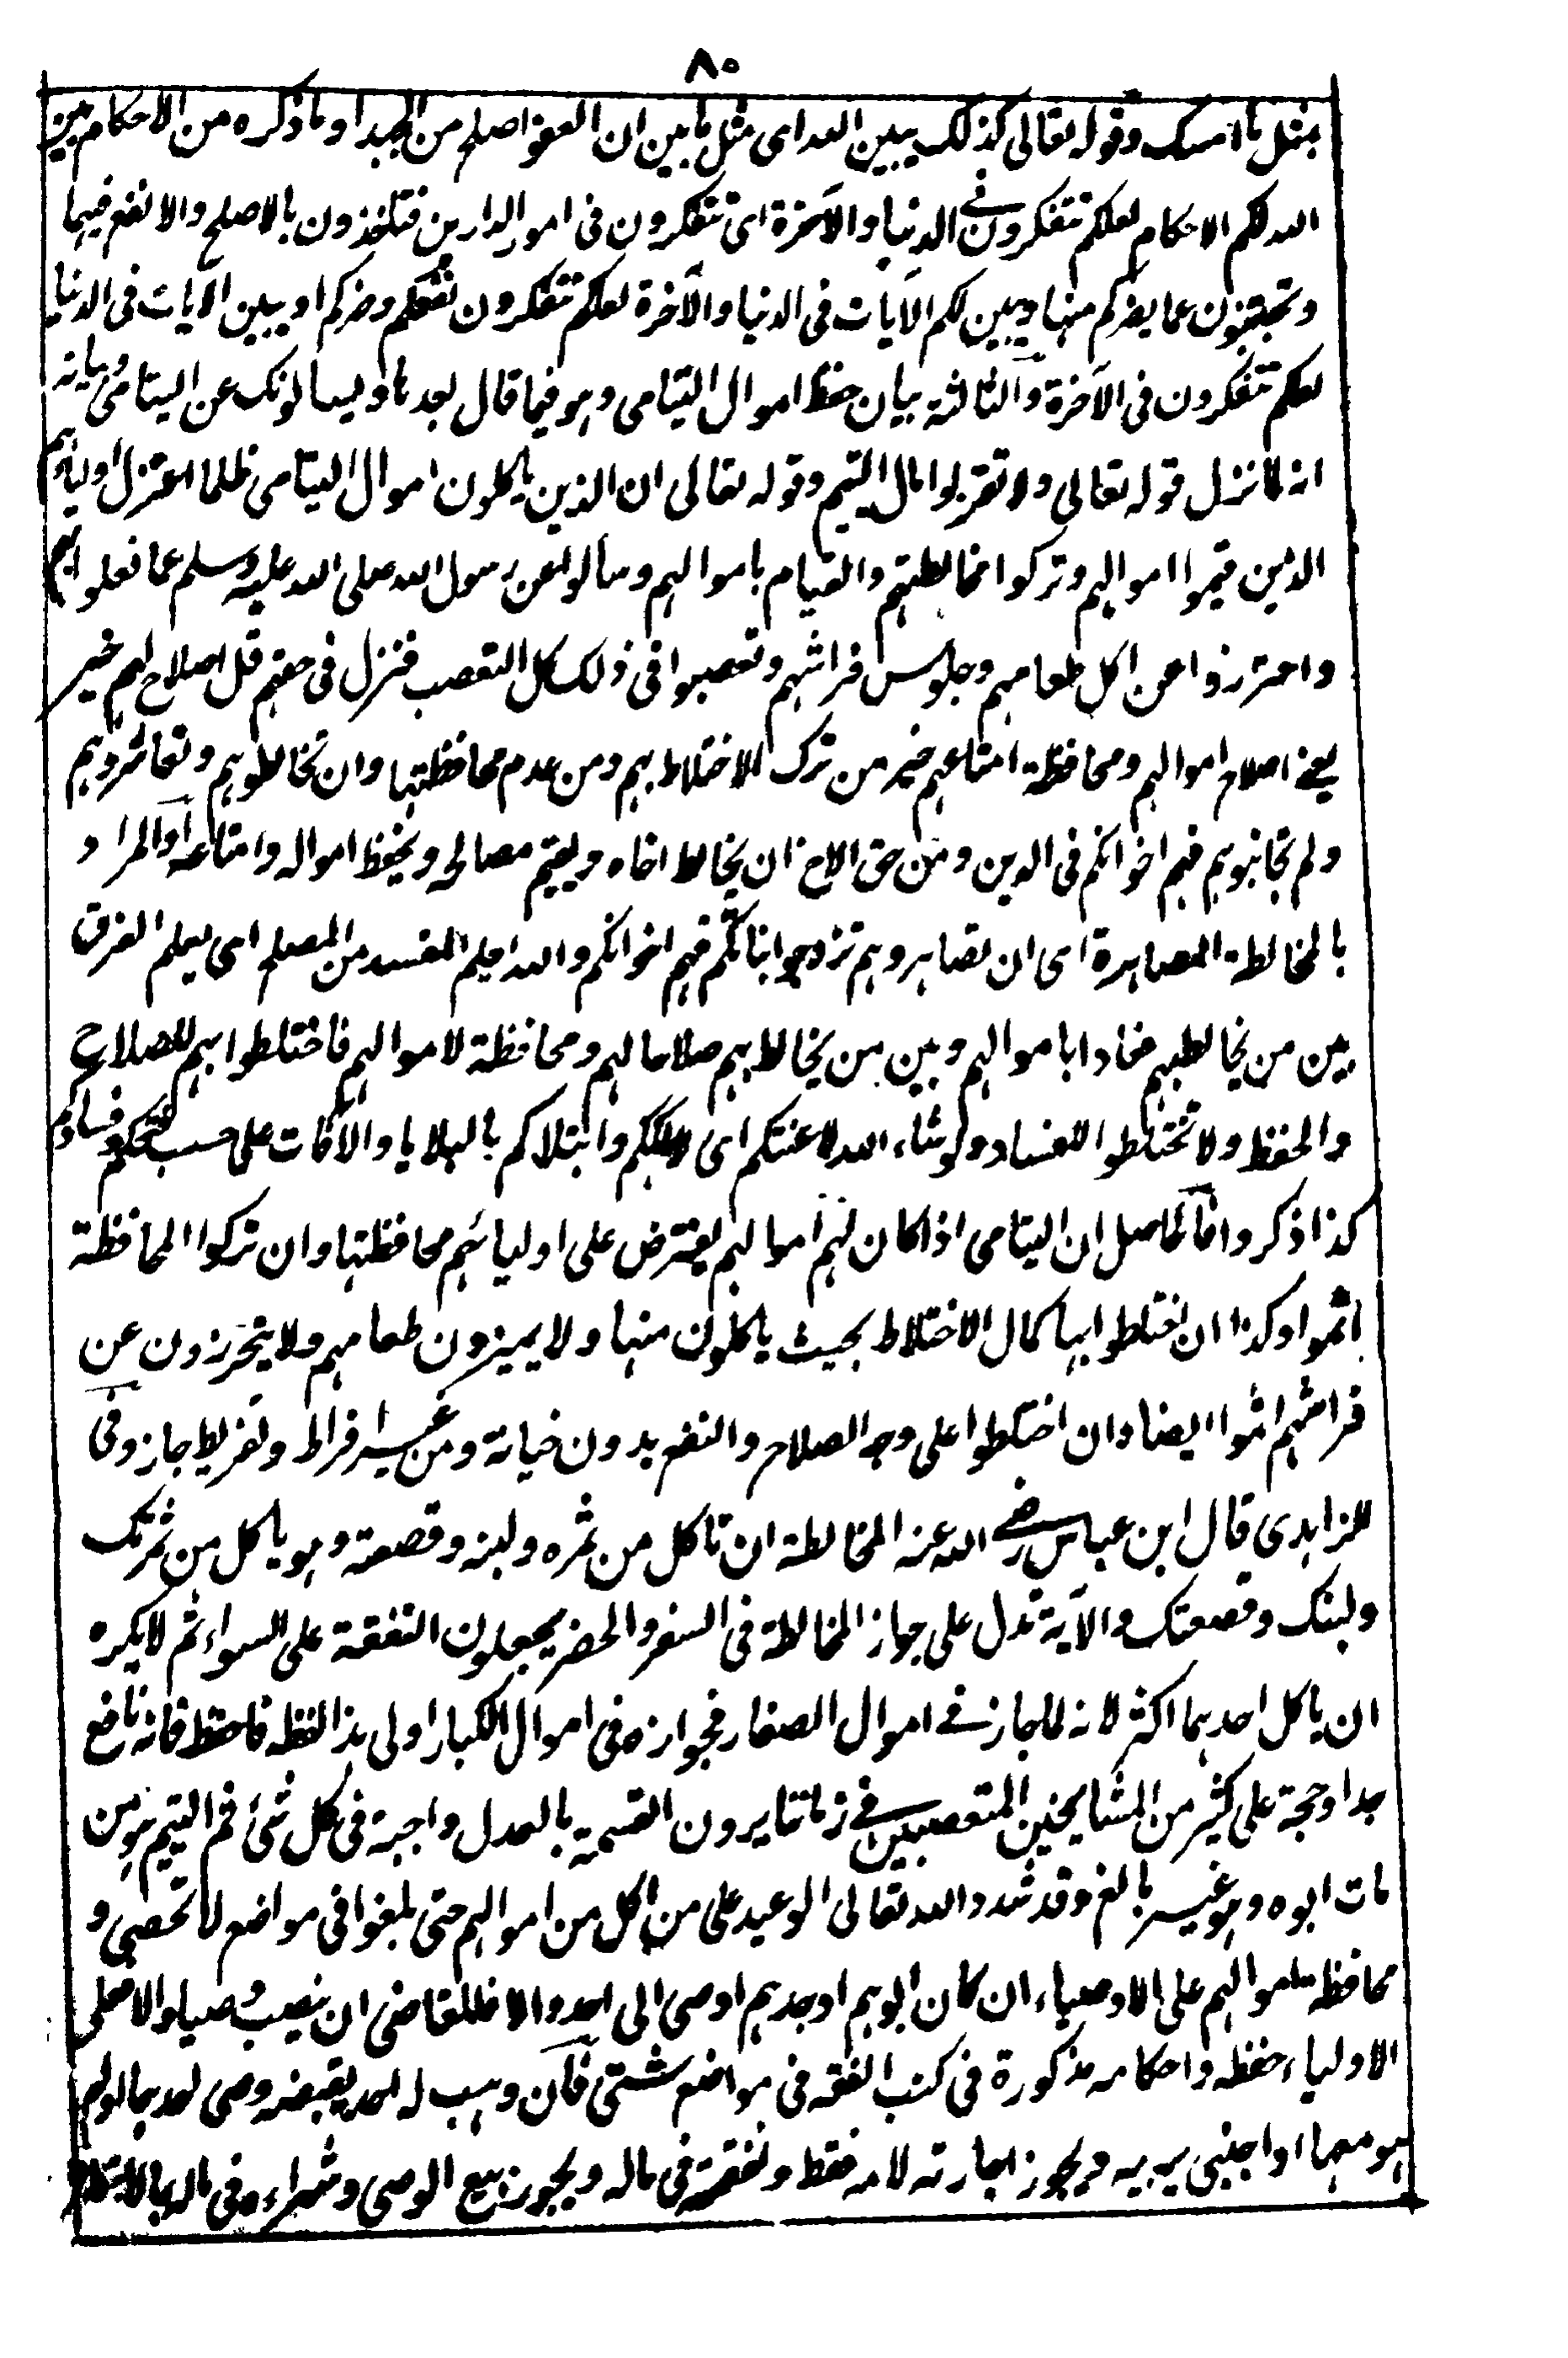 ٨٠
بمثل ما امسك وقوله تعالى كذلك يبين الله اى مثل ما بين ان العفو اصلح من الجهد او ما ذكره من الاحكام يبين
الله لكم الاحكام لعلكم تتفكرون فى الدنيا والآخرة اى تتفكرون فى امور الدارين فتاخذون بالاصلح والانفع فيهما
وتجتنبون عما يضركم منها ويبين لكم الآيات فى الدنيا والآخرة لعلكم تتفكرون نفعكم وضركم او يبين الآيات فى الدنيا
لعلكم تتفكرون فى الآخرة والثالثة بيان حفظ اموال اليتامى وهو فيما قال بعدها ويسالونك عن اليتامى وبيانه
انه لما نزل قوله تعالى ولا تقربوا مال اليتيم وقوله تعالى ان الذين ياكلون اموال اليتامى ظلما اعتزل اولياؤهم
الذين قيموا اموالهم وتركوا مخالطتهم والقيام باموالهم وسألوا عن رسول الله صلى الله عليه وسلم عما فعلوا بهم
واحترزوا عن اكل طعامهم وجلوس فراشهم وتعصبوا فى ذلك كل التعصب فنزل فى حقهم قل اصلاح لهم خير
يعنے اصلاح اموالهم ومحافظة امتاعهم خير من ترك الاختلاط بهم ومن عدم محافظتها وان تخالطوهم وتعاشروهم
ولم تجانبوهم فهم اخوانكم فى الدين ومن حق الاخ ان يخالط اخاه ويقيم مصالحه ويحفظ امواله وامتاعه او المراد
بالمخالطة المصاهرة اى ان تصاهروهم تزوجوا بناتكم فهم اخوانكم والله يعلم المفسد من المصلح اى يعلم الفرق
بين من يخالطهم فسادا باموالهم وبين من يخالط بهم صلاحا لهم ومحافظة لاموالهم فاختلطوا بهم للصلاح
والحفظ ولا تختلطوا للفساد ولو شاء الله لاعنتكم اى لاهلككم وابتلاكم بالبلايا والآفات على حسب فسادكم
كذا ذكروا فالحاصل ان اليتامى اذا كان لهم اموالهم يفترض على اوليائهم محافظتها وان تركوا المحافظة
اثموا وكذا ان اختلطوا بها كمال الاختلاط بحيث ياكلون منها ولا يميزون طعامهم ولا يتحرزون عن
فراشهم اثموا ايضا وان اختلطوا على وجه الصلاح والنفع بدون خيانة ومن غير افراط وتفريط جاز وفى
الزاهدى قال ابن عباس رضے الله عنه المخالطة ان تاكل من ثمره ولبنه وقصعته وهو ياكل من ثمرتك
ولبنك وقصعتك والآية تدل على جواز المخالطة فى السفر والحضر يجعلون النفقة على السواء ثم لا يكره
ان ياكل احدهما اكثر لانه لما جاز فے اموال الصغار فجوازه فى اموال الكبار اولى هذا لفظه فاحفظ فانه نافع
جدا وحجة على كثير من المشايخين المتعصبين فے زماننا يرون القسمة بالعدل واجبة فى كل شئ ثم اليتيم هو من
مات ابوه وهو غير بالغ وقد شدد الله تعالى الوعيد على من اكل من اموالهم حتى بلغوا فى مواضع لا تحصى و
محافظة اموالهم على الاوصياء ان كان ابوهم او جدهم اوصى الى احد والا فللقاضى ان ينصب وصيا والا فعلى
الاولياء حفظه واحكامه مذكورة فى كتب الفقه فى مواضع شتى فان وهب له احد يقبضه وصى احد بما او ام
هو معها او اجنبى يربيه ويجوز اجارته لامه فقط ونفقته فى ماله ويجوز بيع الوصى وشراءه فى ماله